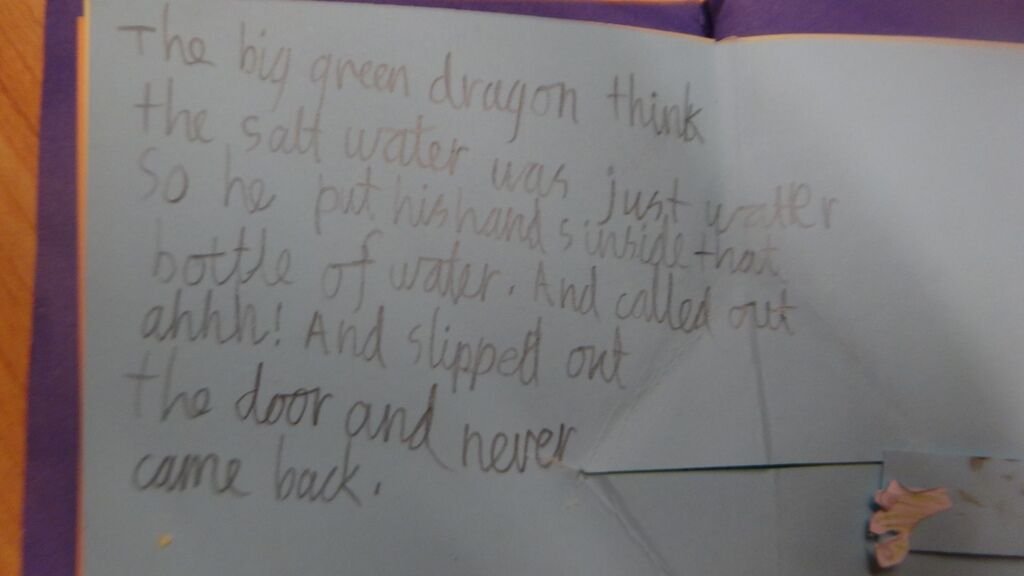 The big green dragon think
the salt water was just water
So he put his hands inside that
bottle of water. And called out
ahhh! And slipped out
the door and never
came back.